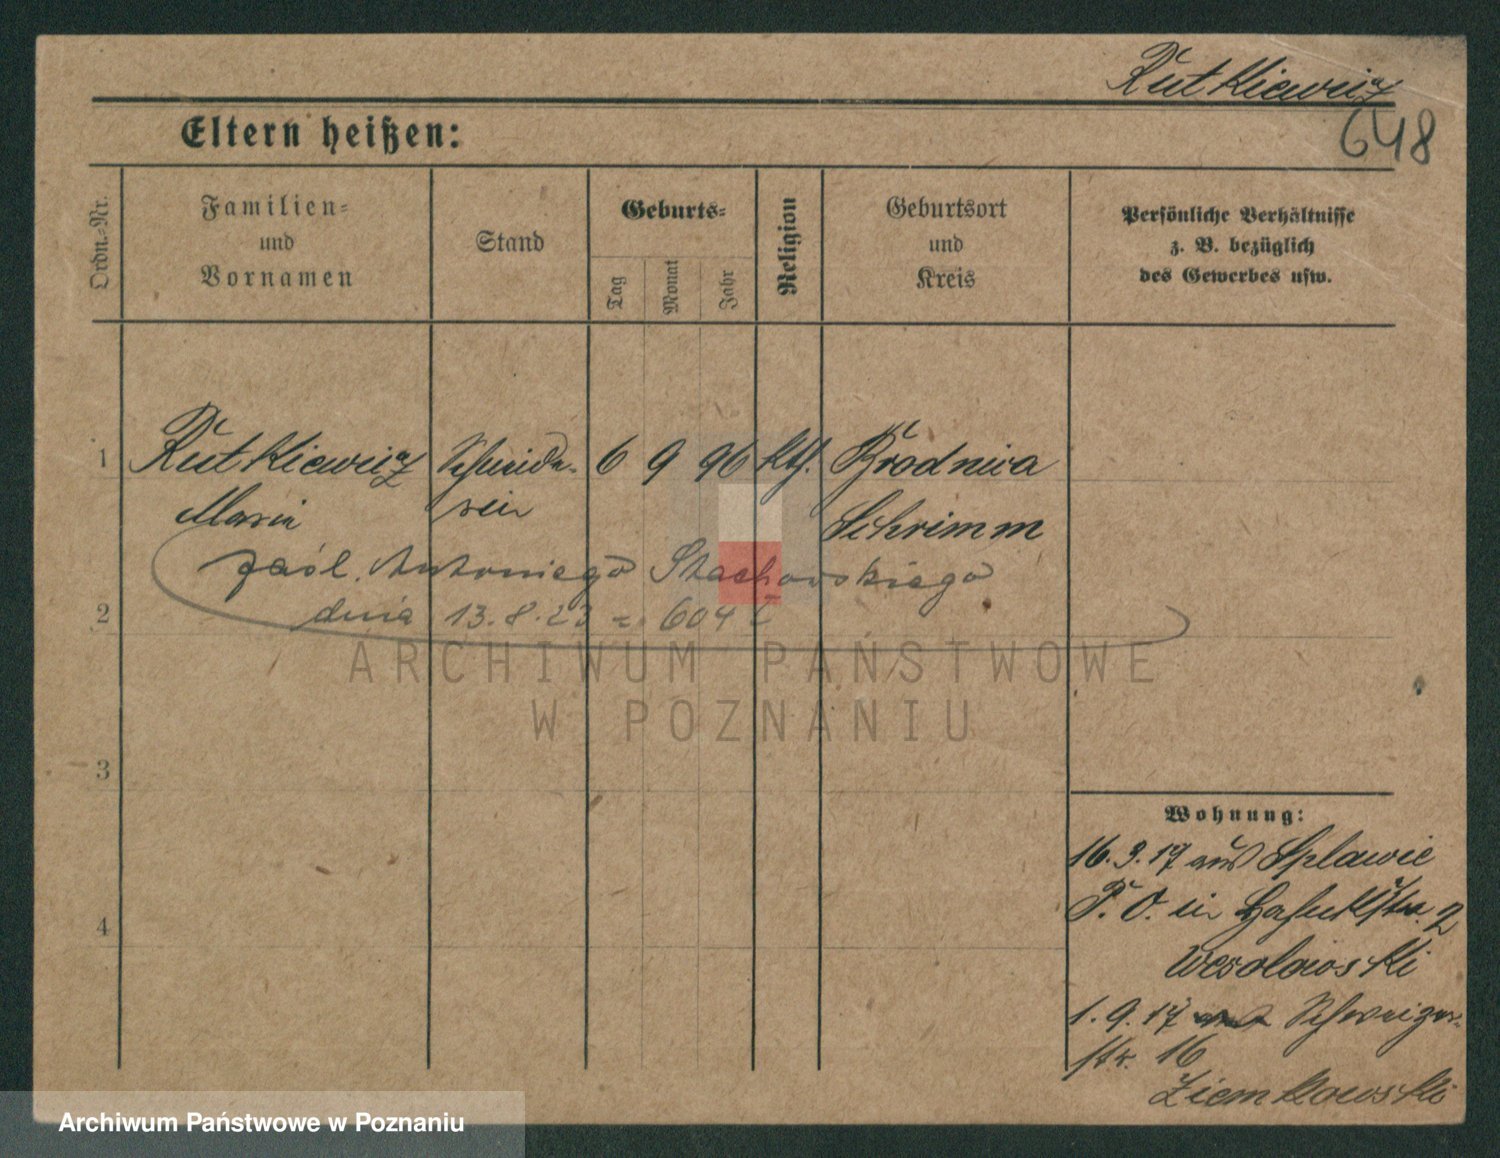 Rutkiewicz
648
Eltern heißen:
Ordn.-Nr.
Familien-
und
Vornamen
Stand
Geburts-
Tag
Monat
Jahr
Religion
Geburtsort
und
Kreis
Persönliche Verhältnisse
z. B. bezüglich
des Gewerbes usw.
1 Rutkiewicz Schneide- 6 9 96 kth. Brodnica
Maria rin Schrimm
zaśl. Antoniego Stachowskiego
2 dnia 13.8.23 604
ARCHIWUM PAŃSTWOWE
W POZNANIU
3
4
Wohnung:
16.3.17 aus Splawie
P. O. in 2
Wesolowski
1.9.17 Schweizer-
str. 16
Ziemkowski
Archiwum Państwowe w Poznaniu